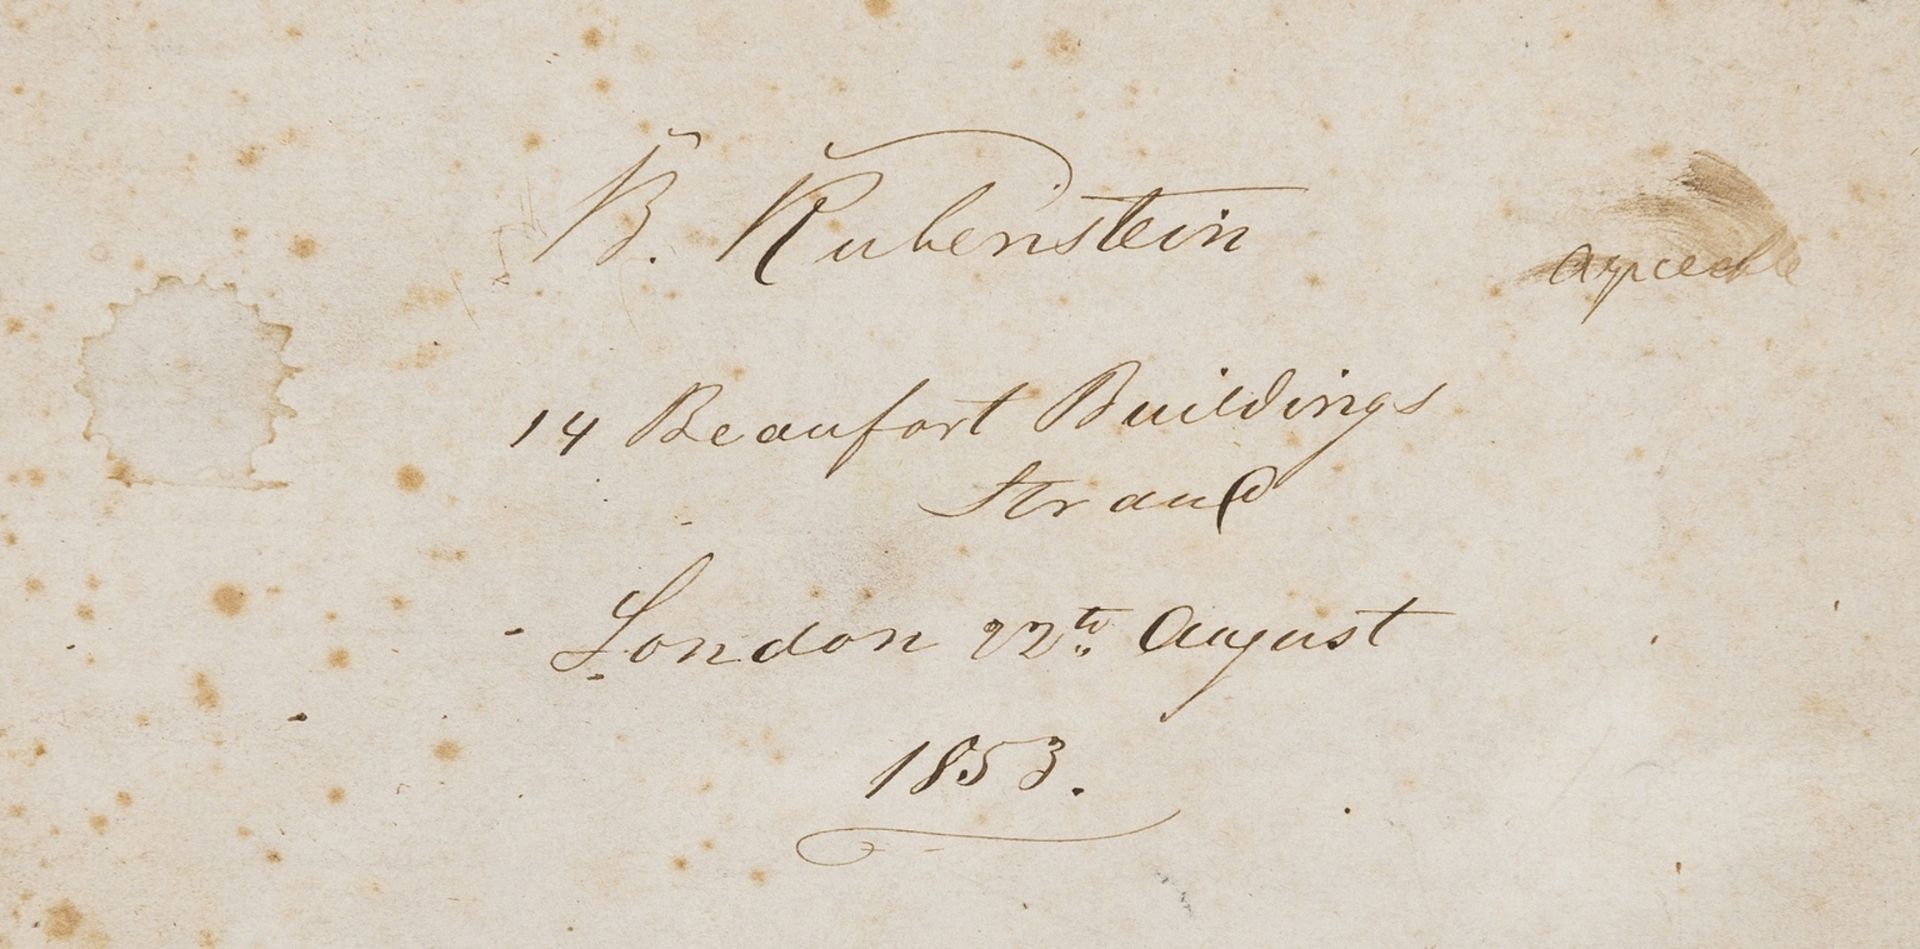 B. Rubenstein
14 Beaufort Buildings
Strand
London 22th August
1853.